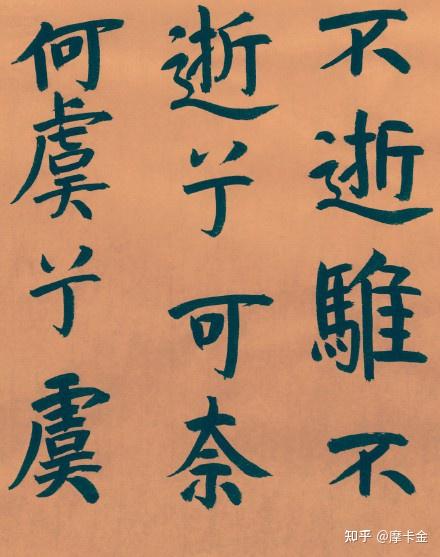 不逝騅不
逝兮可奈
何虞兮虞
知乎 @摩卡金